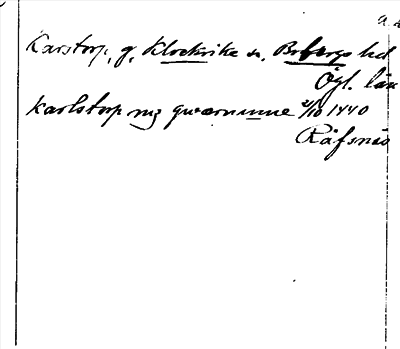 Karstorp, g, Klockrike sn, Bobergs hd
Ögl. län
Karlstorp mz qwærnumne 2/10 1440
Räfsnäs